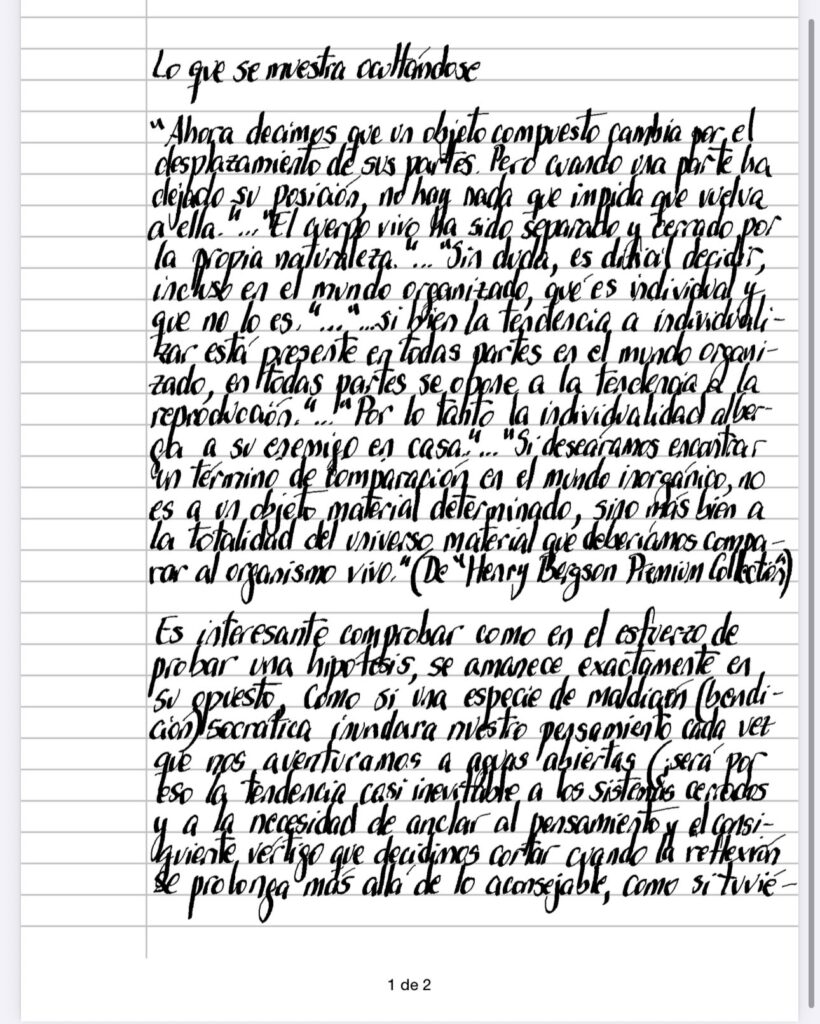 Lo que se muestra ocultándose
"Ahora decimos que un objeto compuesto cambia por el
desplazamiento de sus partes. Pero cuando una parte ha
dejado su posición, no hay nada que impida que vuelva
a ella."..."El cuerpo vivo ha sido separado y cerrado por
la propia naturaleza."..."Sin duda, es difícil decidir,
incluso en el mundo organizado, qué es individual y
que no lo es."..."...si bien la tendencia a individuali-
zar está presente en todas partes en el mundo organi-
zado, en todas partes se opone a la tendencia a la
reproducción."..."Por lo tanto la individualidad alber-
ga a su enemigo en casa."..."Si deseáramos encontrar
un término de comparación en el mundo inorgánico, no
es a un objeto material determinado, sino más bien a
la totalidad del universo material que deberíamos compa-
rar al organismo vivo." (De "Henry Bergson Premium Collection")
Es interesante comprobar como en el esfuerzo de
probar una hipótesis, se amanece exactamente en
su opuesto. Como si una especie de maldición (bendi-
ción) socrática inundara nuestro pensamiento cada vez
que nos aventuramos a aguas abiertas (¿será por
eso la tendencia casi inevitable a los sistemas cerrados
y a la necesidad de anclar al pensamiento y el consi-
guiente vértigo que decidimos cortar cuando la reflexión
se prolonga más allá de lo aconsejable, como si tuvié-
1 de 2